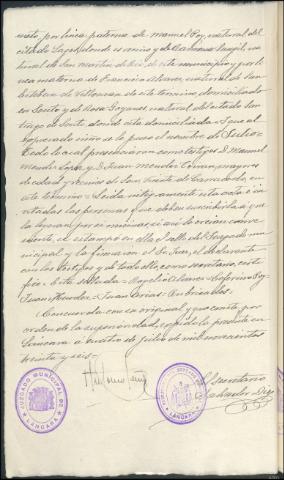 nieto, por linea paterna de Manuel Poy, natural del
citado donde es vecino y de
natural de San Martin de este municipio y por li-
nea materna de Francisco Alvarez, natural de San
Esteban de de este término domiciliado
en Souto y de Rosa Goyanes, natural del citado San-
tiago de donde esta domiciliada = Que al
expresado niño se le puso el nombre de
Todo lo cual presenciaron como testigos D. Manuel
Mendez Lopez y D. Juan Mendez mayores
de edad y vecinos de San Vicente de en
este término = Leida integramente esta acta é in-
vitadas las personas que deben suscribirla á que
la leyeran por si mismas si asi lo creian conve-
niente, se estampo en ella el sello del Juzgado mu-
nicipal y la firmaron el Sr. Juez, el declarante
con los testigos y de todo ello, como secretario, certi-
fico = Esta sellada = Rogelio Alvarez = Ceferino Poy
Juan Mendez = Juan Arias = Rubricados.
Concuerda con su original y para que conste, por
orden de la superioridad, expido la presente en
Láncara a cuatro de julio de mil novecientos
treinta y seis =
El Secretario
JUZGADO MUNICIPAL DE
LÁNCARA
LÁNCARA